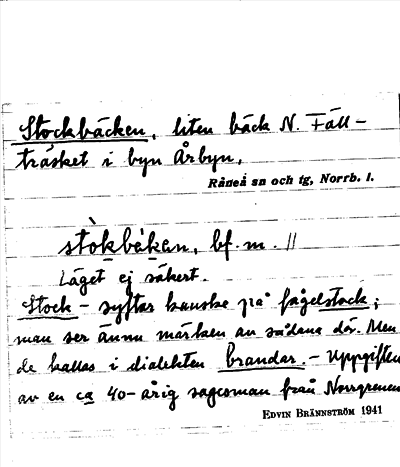 Stockbäcken, liten bäck N. Fäll-
träsket i byn Årbyn.
Råneå sn och tg, Norrb. l.
stòkbèkan, bf. m. //
Läget ej säkert.
Stock - syftar kanske på fågelstock;
man ser ännu märken av sådana där. Men
de kallas i dialekten brandar. - Uppgiften
av en ca 40-årig sagesman från Norrgrennen
EDVIN BRÄNNSTRÖM 1941